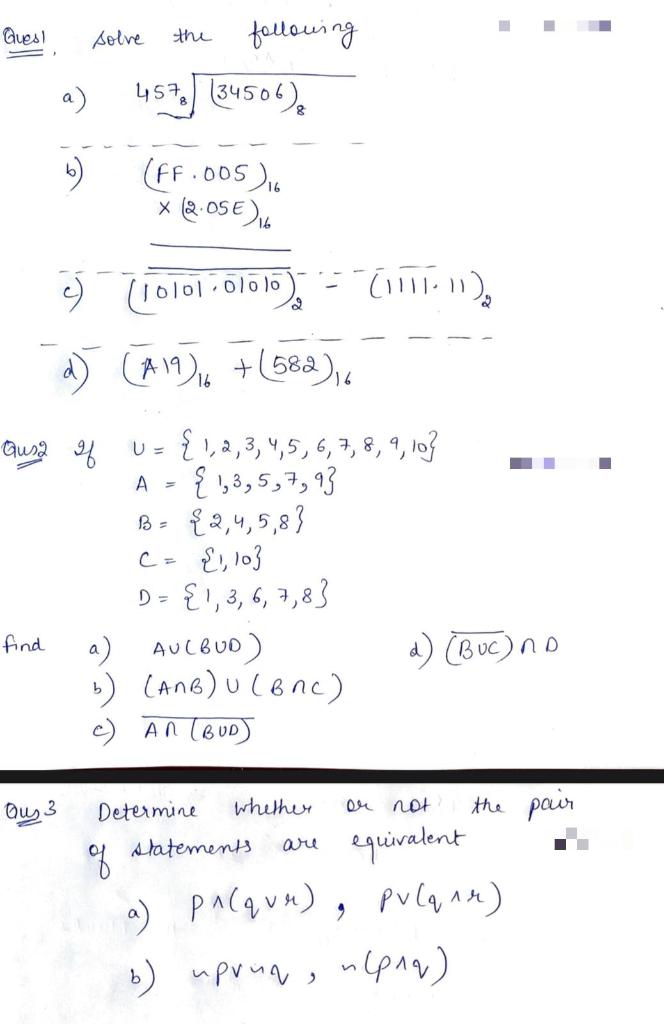 Ques1, solve the following
a) 457₈ √(34506)₈
b) (FF.005)₁₆
× (2.05E)₁₆
c) (10101.01010)₂ - (1111.11)₂
d) (A19)₁₆ + (582)₁₆
Ques2 If U = {1,2,3,4,5,6,7,8,9,10}
A = {1,3,5,7,9}
B = {2,4,5,8}
C = {1,10}
D = {1,3,6,7,8}
find a) A∪(B∪D) d) (B̅∪̅C̅)∩D
b) (A∩B)∪(B∩C)
c) A̅∩̅(̅B̅∪̅D̅)̅
Ques3 Determine whether or not the pair
of statements are equivalent
a) p∧(q∨r), p∨(q∧r)
b) ~p∨~q, ~(p∧q)